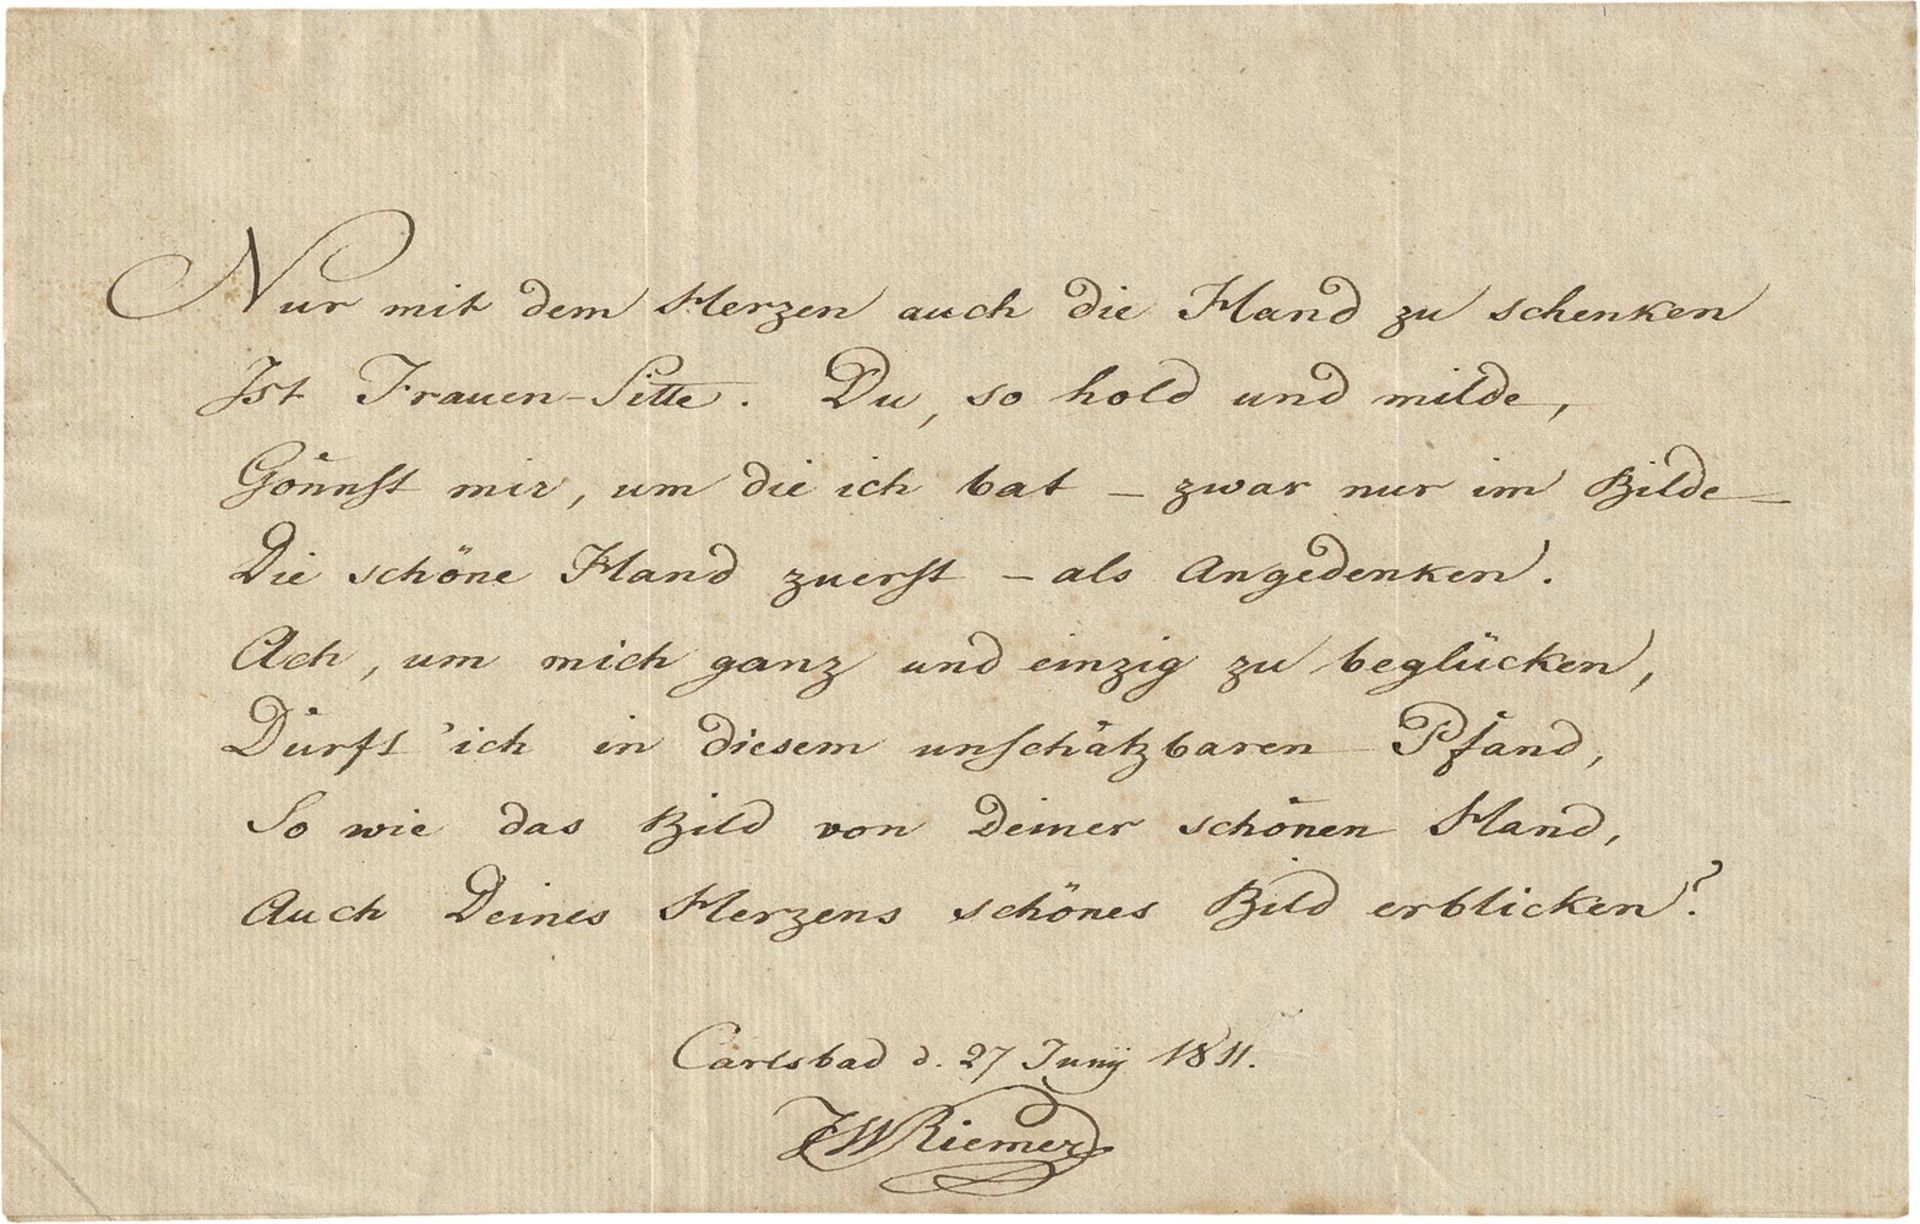 Nur mit dem Herzen auch die Hand zu schenken
Ist Frauen-Sitte. Du, so hold und milde,
Gönnst mir, um die ich bat – zwar nur im Bilde –
Die schöne Hand zuerst – als Angedenken.
Ach, um mich ganz und einzig zu beglücken,
Dürft' ich in diesem unschätzbaren Pfand,
So wie das Bild von Deiner schönen Hand,
Auch Deines Herzens schönes Bild erblicken?
Carlsbad d. 27 Junij 1811.
FWRiemer